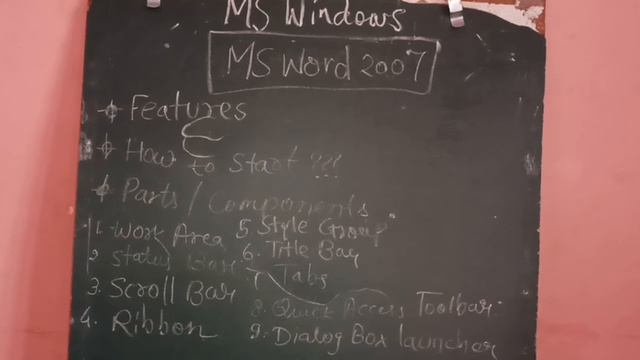 MS Windows
MS Word 2007
Features
How to Start !!!
Parts / Components
1. Work Area
2 Status Bar
3. Scroll Bar
4. Ribbon
5 Style Group
6. Title Bar
7 Tabs
8. Quick Access Toolbar.
9. Dialog Box launcher